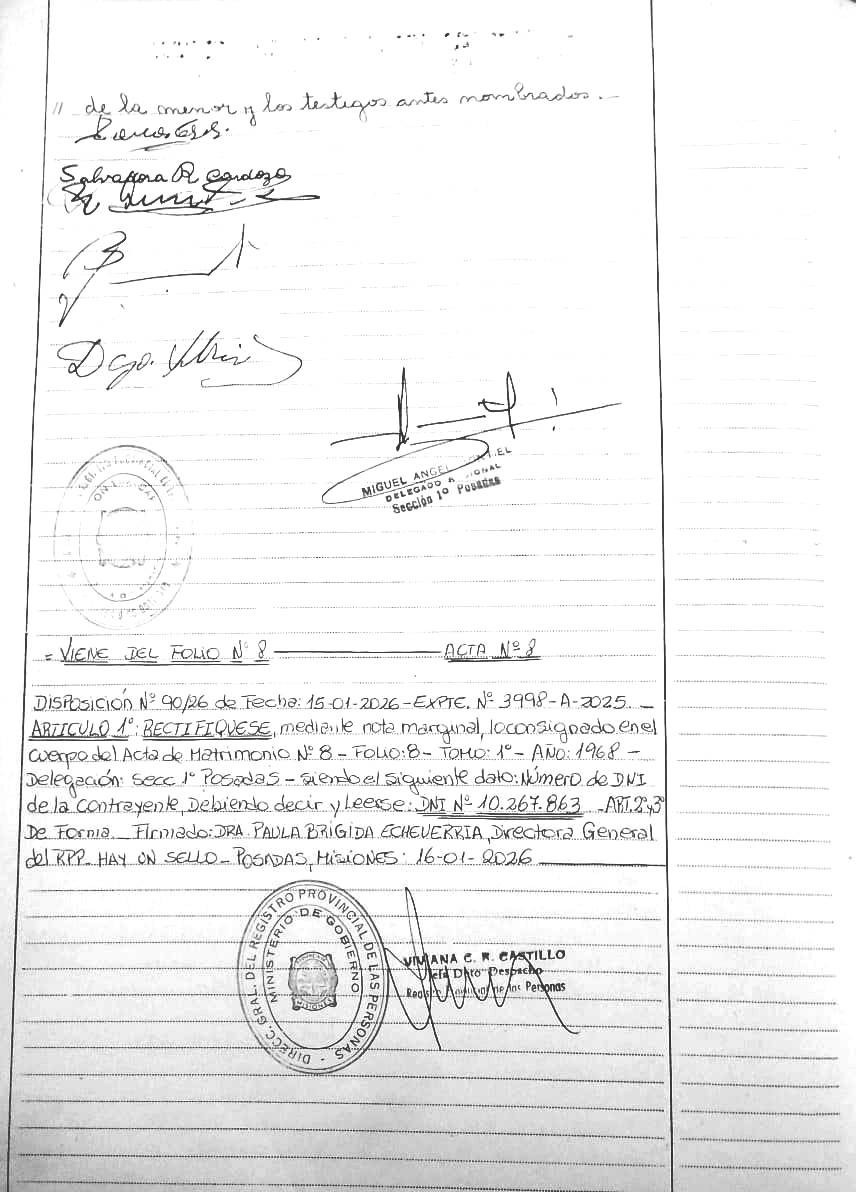 // de la menor y los testigos antes nombrados.-
Salvadora R Cardozo
Dgo.
MIGUEL ANGEL
DELEGADO
Sección 1º Posadas
= VIENE DEL FOLIO Nº 8 ACTA Nº 8
DISPOSICIÓN Nº 90/26 de Fecha: 15-01-2026-EXPTE. Nº 3998-A-2025.-
ARTICULO 1º: RECTIFIQUESE, mediante nota marginal, lo consignado en el
cuerpo del Acta de Matrimonio Nº 8 - FOLIO: 8 - TOMO: 1º - AÑO: 1968 -
Delegación: secc 1º Posadas - siendo el siguiente dato: Número de DNI
de la contrayente, Debiendo decir y Leerse: DNI Nº 10.267.863 -ART. 2º y 3º
De Forma. Firmado: DRA. PAULA BRIGIDA ECHEVERRIA, Directora General
del RPP- HAY UN SELLO - POSADAS, Misiones: 16-01-2026
DIRECC. GRAL. DEL REGISTRO PROVINCIAL DE LAS PERSONAS -
MINISTERIO DE GOBIERNO
MISIONES
VIVIANA C. R. CASTILLO
Jefa Dpto Despacho
de las Personas